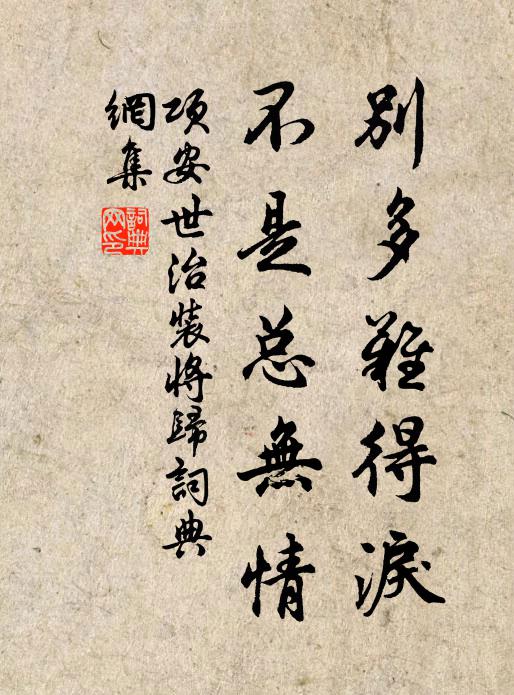 別多難得淚
不是总無情
项安世治裝將歸詞典
網集
詞典
网印